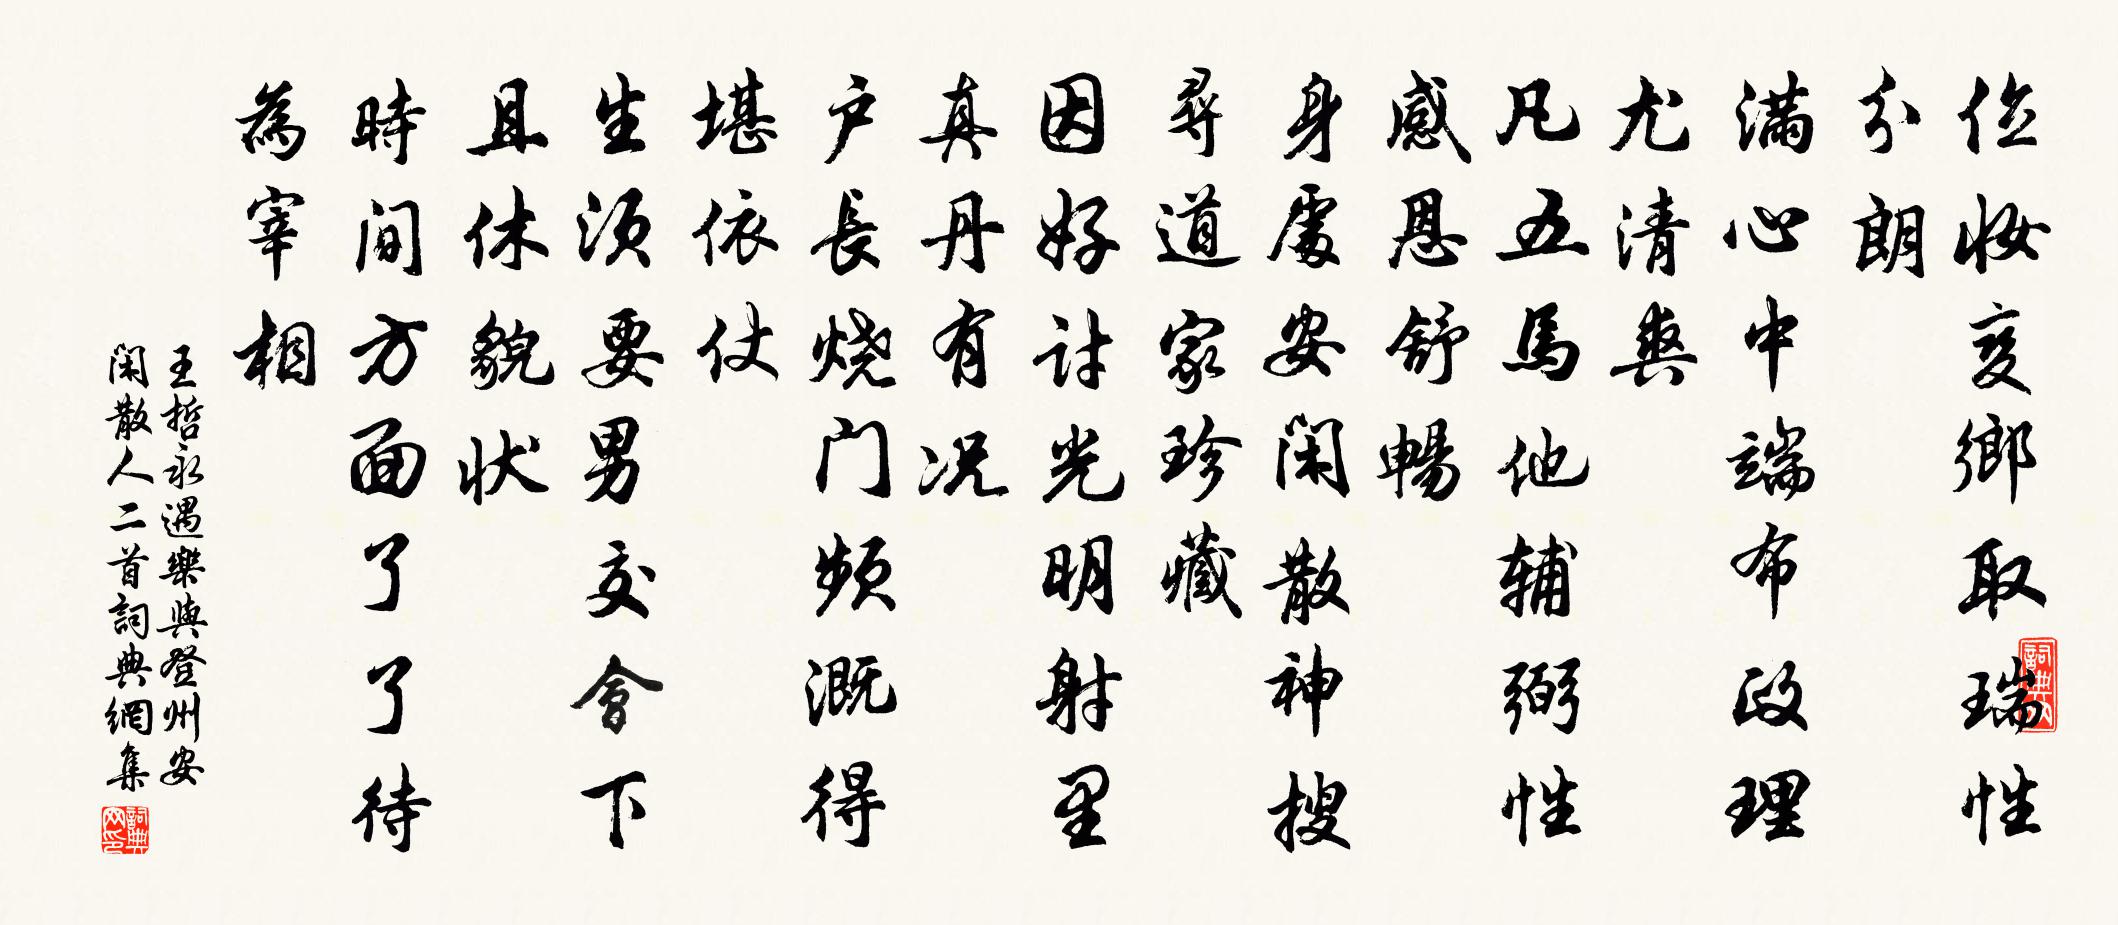 俭妆变鄉取瑞性
分朗
满心中端布政理
尤清爽
凡五馬他辅弼性
感恩舒暢
身處安闲散神搜
尋道家珍藏
因好討光明射里
真丹有况
户長烧门频溉得
堪依仗
生须要男交會下
且休貌状
時间方面了了待
為宰相
王哲永遇樂與登州安
闲散人二首詞典網集